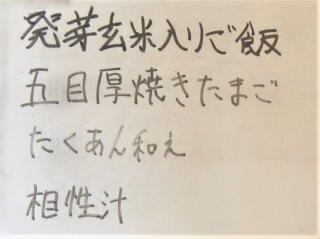 発芽玄米入りご飯
五目厚焼きたまご
たくあん和え
相性汁